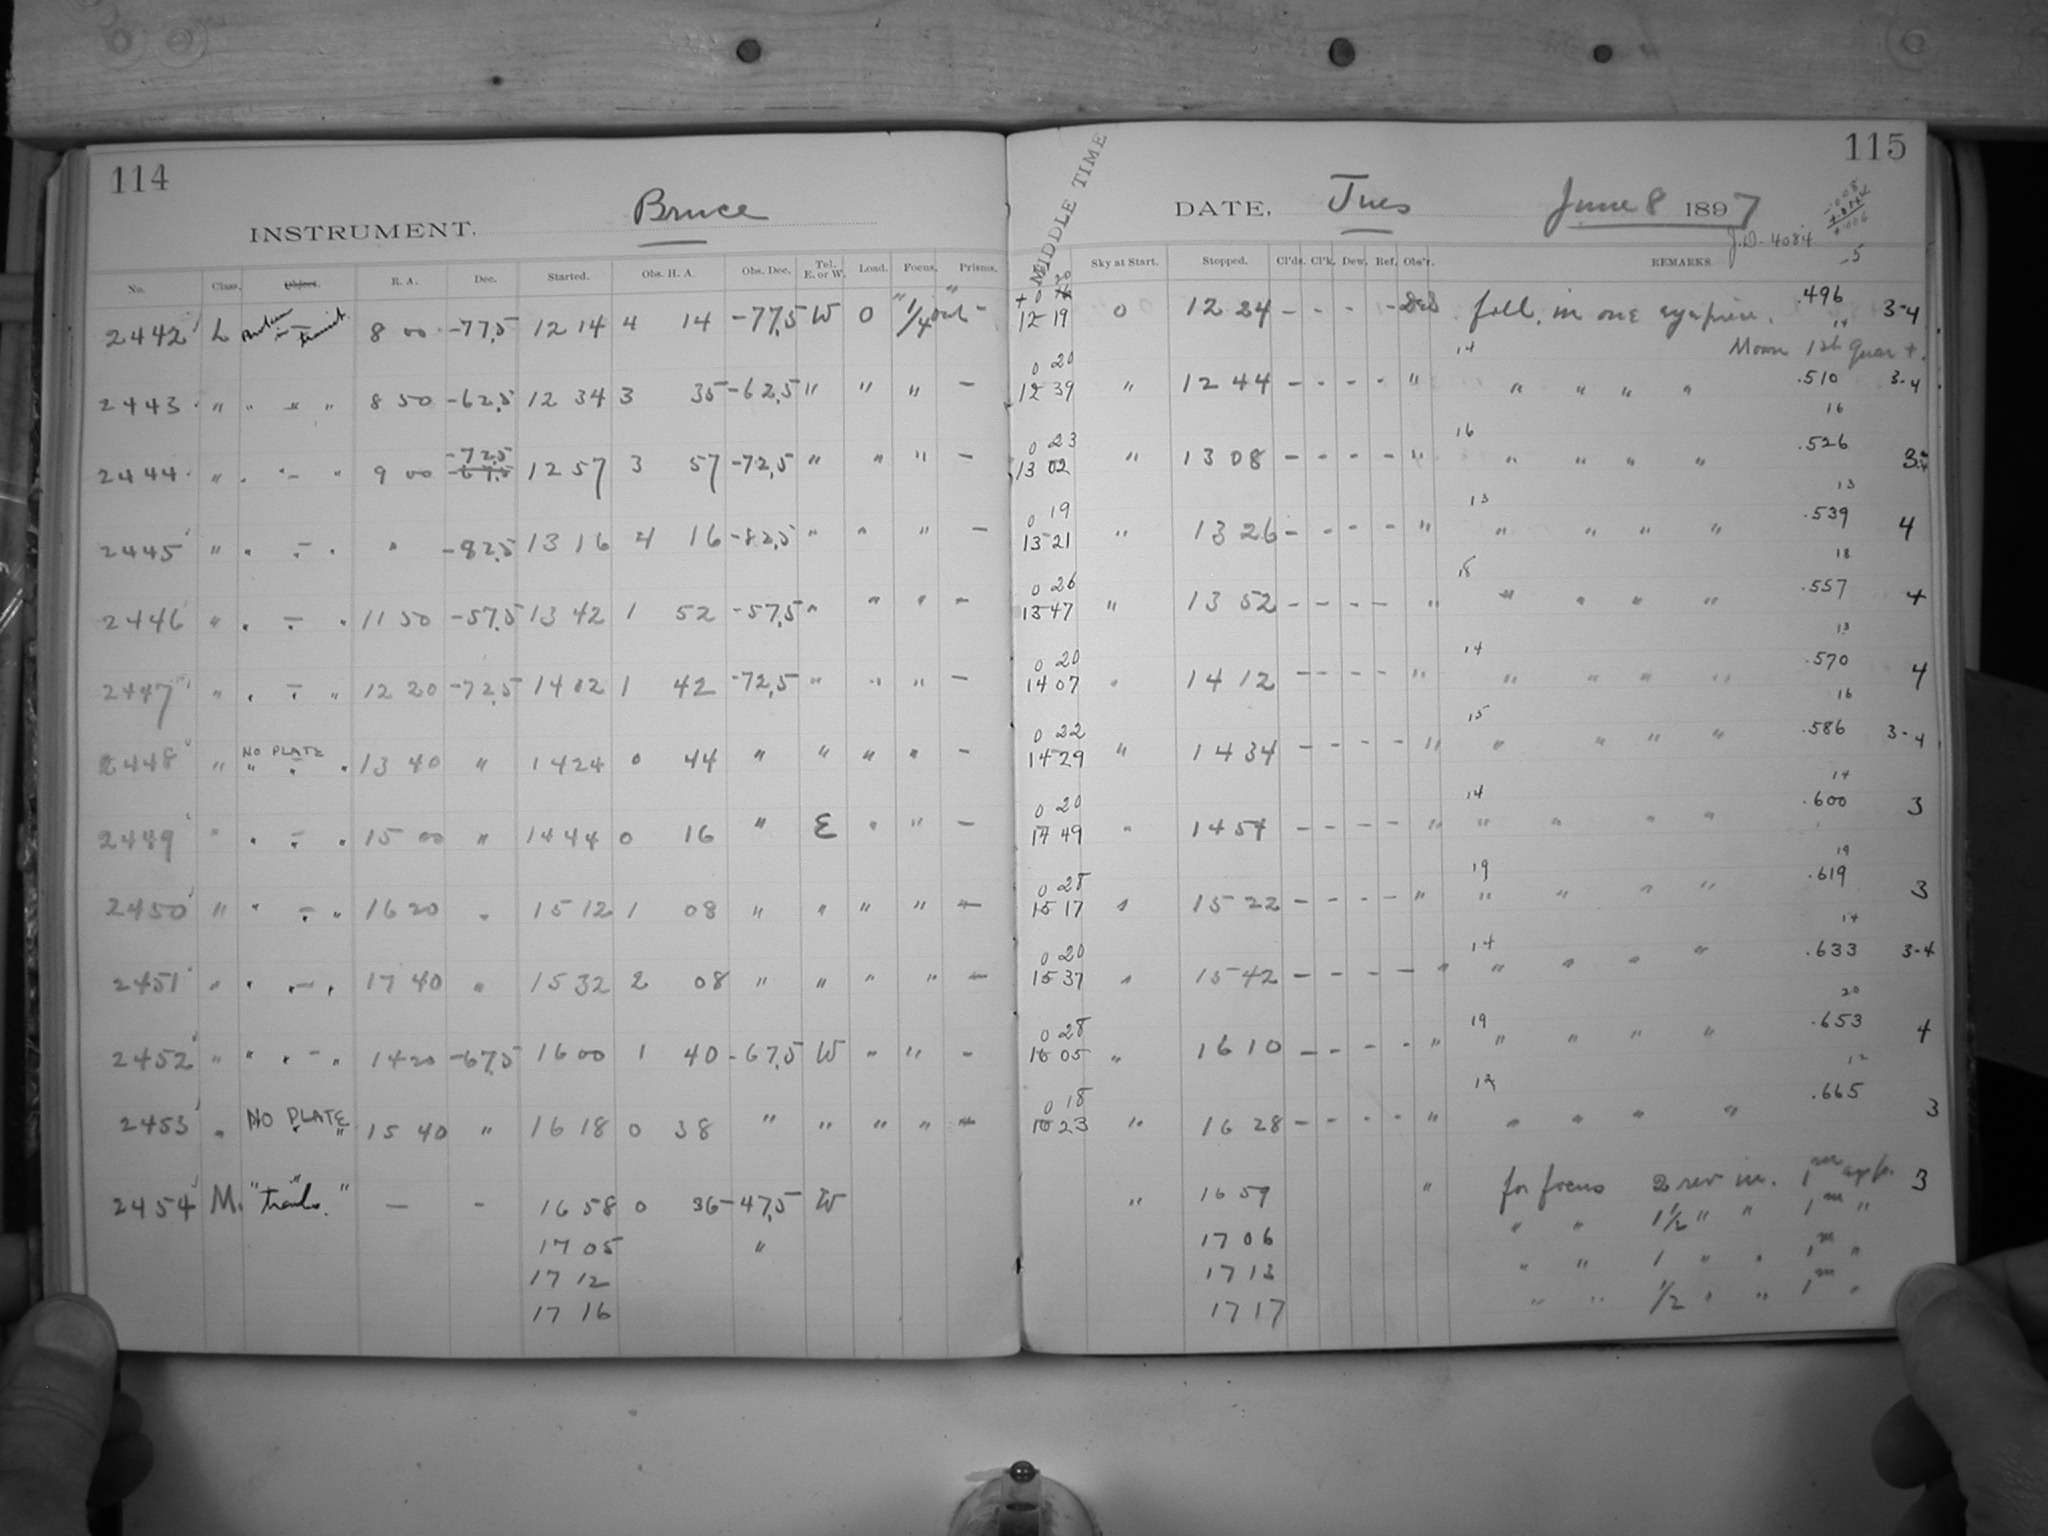 114
INSTRUMENT. Bruce
No. Class. Object. R. A. Dec. Started. Obs. H. A. Obs. Dec. Tel. E. or W. Load. Focus. Prisms.
2442 L 8 00 -77,5 12 14 4 14 -77,5 W 0 1/4 out -
2443 " " - " 8 50 -62,5 12 34 3 35 -62,5 " " " -
-72,5
2444 " " - " 9 00 -67,5 12 57 3 57 -72,5 " " " -
2445 " " - " " -82,5 13 16 4 16 -82,5 " " " -
2446 " " - " 11 50 -57,5 13 42 1 52 -57,5 " " " -
2447 " " - " 12 20 -72,5 14 02 1 42 -72,5 " " " -
NO PLATE
2448 " " " " 13 40 " 14 24 0 44 " " " " -
2449 " " - " 15 00 " 14 44 0 16 " E " " -
2450 " " - " 16 20 " 15 12 1 08 " " " " -
2451 " " - " 17 40 " 15 32 2 08 " " " " -
2452 " " " - " 14 20 -67,5 16 00 1 40 -67,5 W " " -
2453 " NO PLATE " " 15 40 " 16 18 0 38 " " " " -
2454 M. "trails." - - 16 58 0 36 -47,5 W
17 05 "
17 12
17 16
115
MIDDLE TIME
DATE, Tues June 8 1897
J.D. 4084
Sky at Start. Stopped. Cl'ds. Cl'k. Dew. Ref. Obs'r. REMARKS.
12 19 0 12 24 - - - - foll. in one eyepiece. .496 3-4
14
14 Moon 1st Quart.
0 20
12 39 " 12 44 - - - - " " " " " .510 3-4
16
0 23 16
13 02 " 13 08 - - - - " " " " " .526
13
0 19 13
13 21 " 13 26 - - - - " " " " " .539 4
18
0 26 18
13 47 " 13 52 - - - - " " " " " .557 4
13
0 20 14
14 07 " 14 12 - - - - " " " " " .570 4
16
0 22 15
14 29 " 14 34 - - - - " " " " " .586 3-4
14
0 20 14
14 49 " 14 54 - - - - " " " " " .600 3
19
0 28 19
15 17 " 15 22 - - - - " " " " " .619 3
14
0 20 14
15 37 " 15 42 - - - - " " " " " .633 3-4
20
0 28 19
16 05 " 16 10 - - - - " " " " " .653 4
12
0 18 12
16 23 " 16 28 - - - - " " " " " .665 3
" 16 59 " for focus 2 rev in. 1m exp. 3
17 06 " " 1 1/2 " " 1m "
17 13 " " 1 " " 1m "
17 17 " " 1/2 " " 1m "